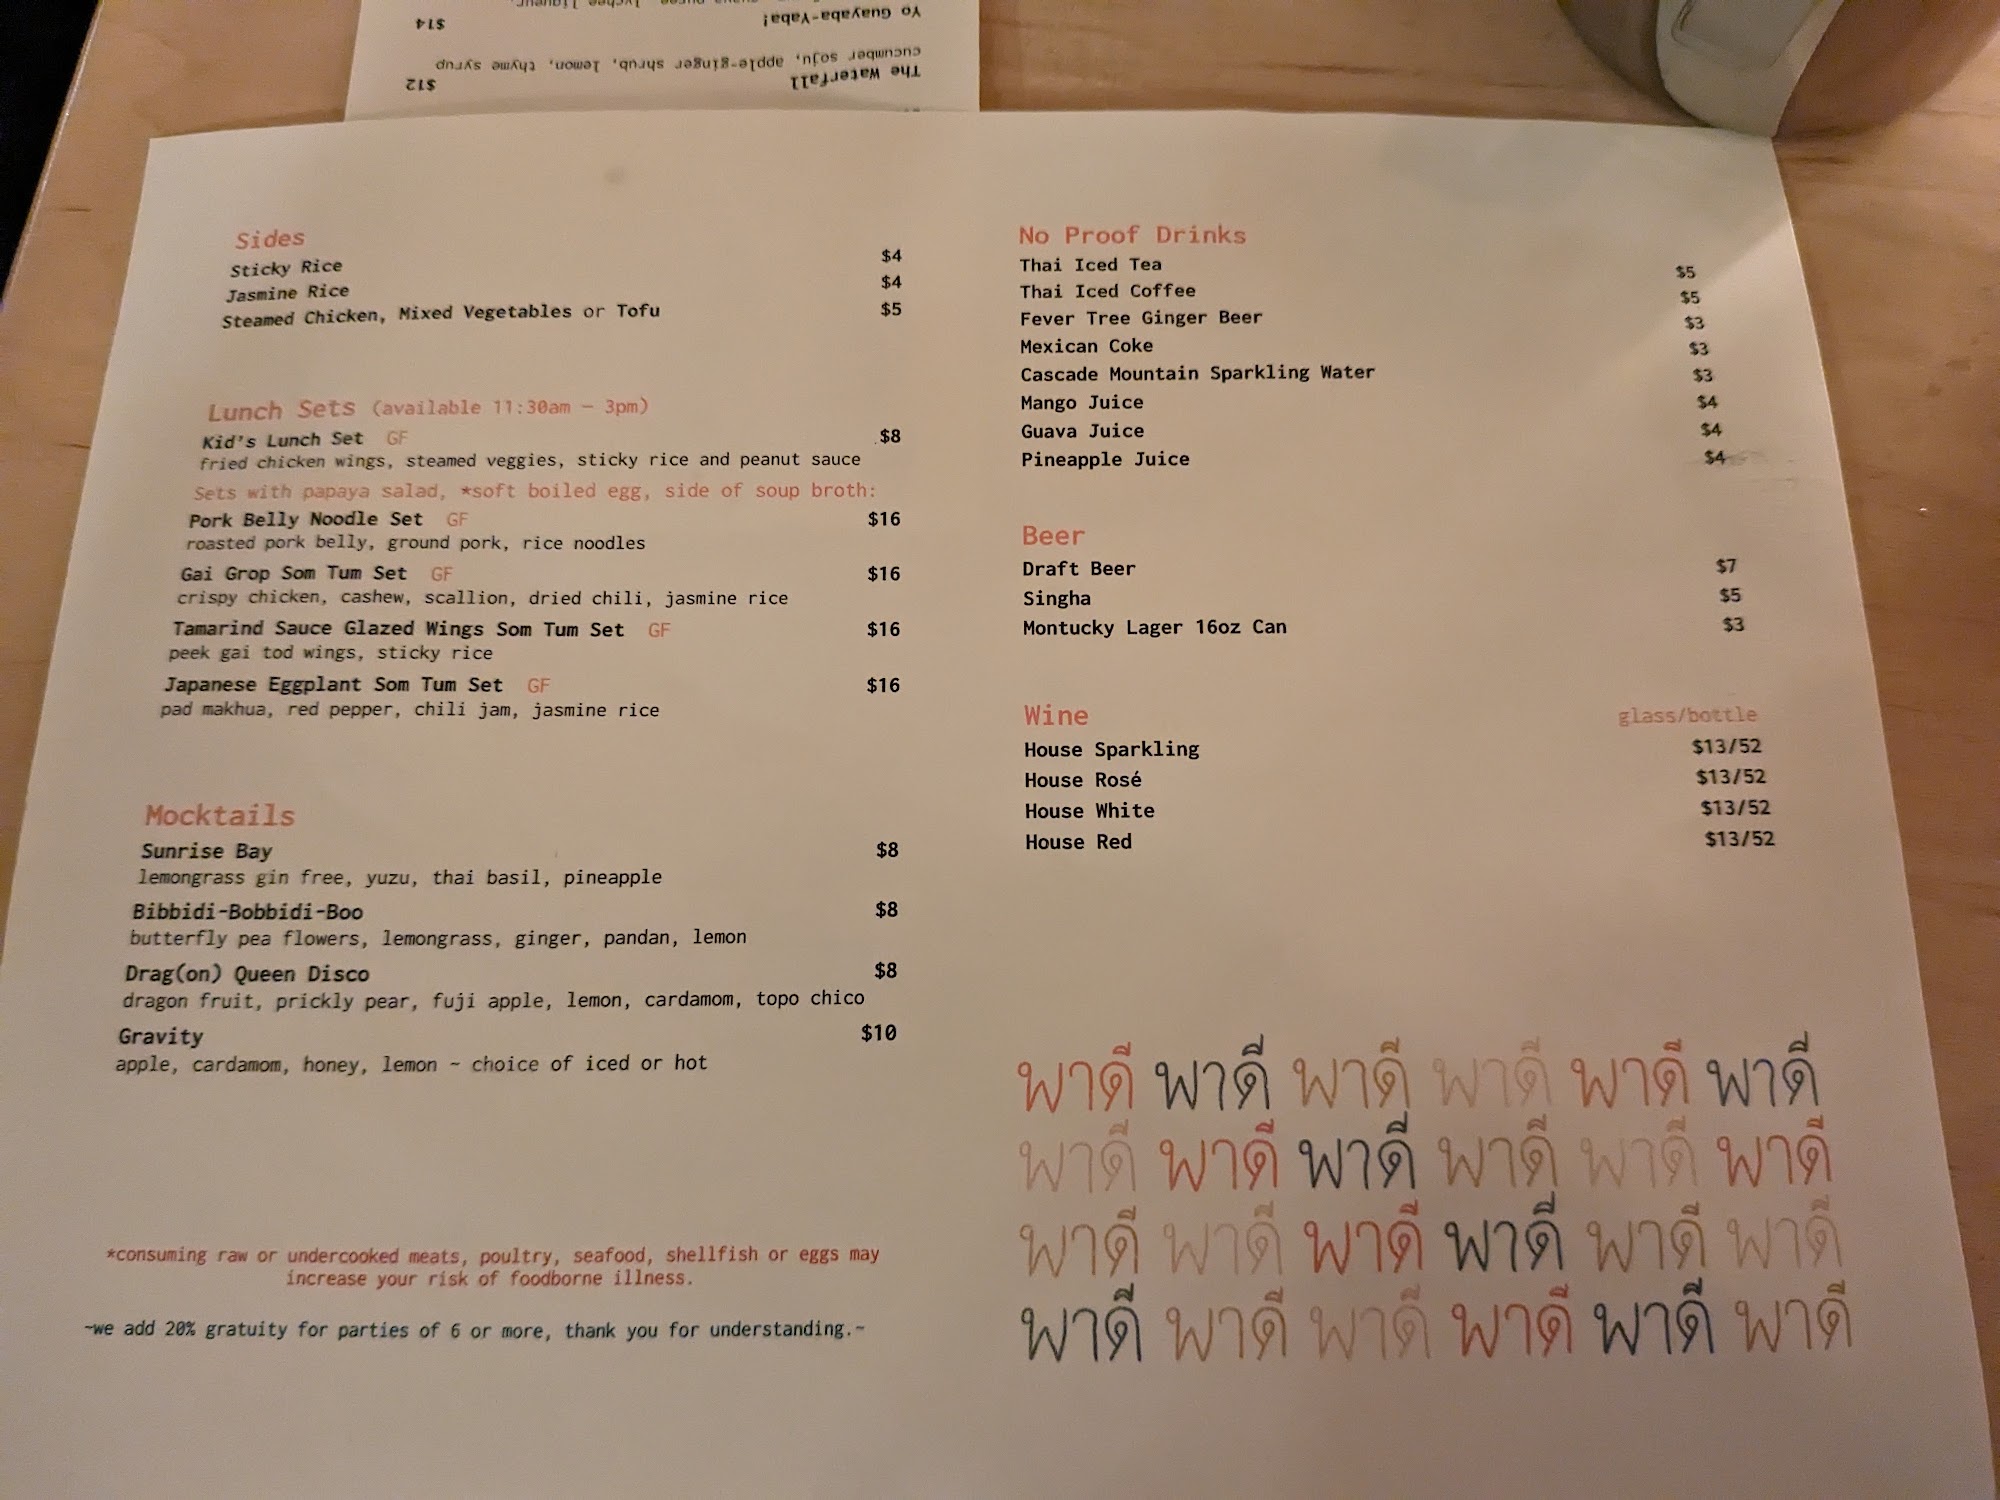 Yo Guayaba-Yaba! $14
The Waterfall $12
cucumber soju, apple-ginger shrub, lemon, thyme syrup
Sides
Sticky Rice $4
Jasmine Rice $4
Steamed Chicken, Mixed Vegetables or Tofu $5
Lunch Sets (available 11:30am – 3pm)
Kid's Lunch Set GF $8
fried chicken wings, steamed veggies, sticky rice and peanut sauce
Sets with papaya salad, *soft boiled egg, side of soup broth:
Pork Belly Noodle Set GF $16
roasted pork belly, ground pork, rice noodles
Gai Grop Som Tum Set GF $16
crispy chicken, cashew, scallion, dried chili, jasmine rice
Tamarind Sauce Glazed Wings Som Tum Set GF $16
peek gai tod wings, sticky rice
Japanese Eggplant Som Tum Set GF $16
pad makhua, red pepper, chili jam, jasmine rice
Mocktails
Sunrise Bay $8
lemongrass gin free, yuzu, thai basil, pineapple
Bibbidi-Bobbidi-Boo $8
butterfly pea flowers, lemongrass, ginger, pandan, lemon
Drag(on) Queen Disco $8
dragon fruit, prickly pear, fuji apple, lemon, cardamom, topo chico
Gravity $10
apple, cardamom, honey, lemon ~ choice of iced or hot
*consuming raw or undercooked meats, poultry, seafood, shellfish or eggs may
increase your risk of foodborne illness.
~we add 20% gratuity for parties of 6 or more, thank you for understanding.~
No Proof Drinks
Thai Iced Tea $5
Thai Iced Coffee $5
Fever Tree Ginger Beer $3
Mexican Coke $3
Cascade Mountain Sparkling Water $3
Mango Juice $4
Guava Juice $4
Pineapple Juice $4
Beer
Draft Beer $7
Singha $5
Montucky Lager 16oz Can $3
Wine glass/bottle
House Sparkling $13/52
House Rosé $13/52
House White $13/52
House Red $13/52
พาดี พาดี พาดี พาดี พาดี พาดี
พาดี พาดี พาดี พาดี พาดี พาดี
พาดี พาดี พาดี พาดี พาดี พาดี
พาดี พาดี พาดี พาดี พาดี พาดี